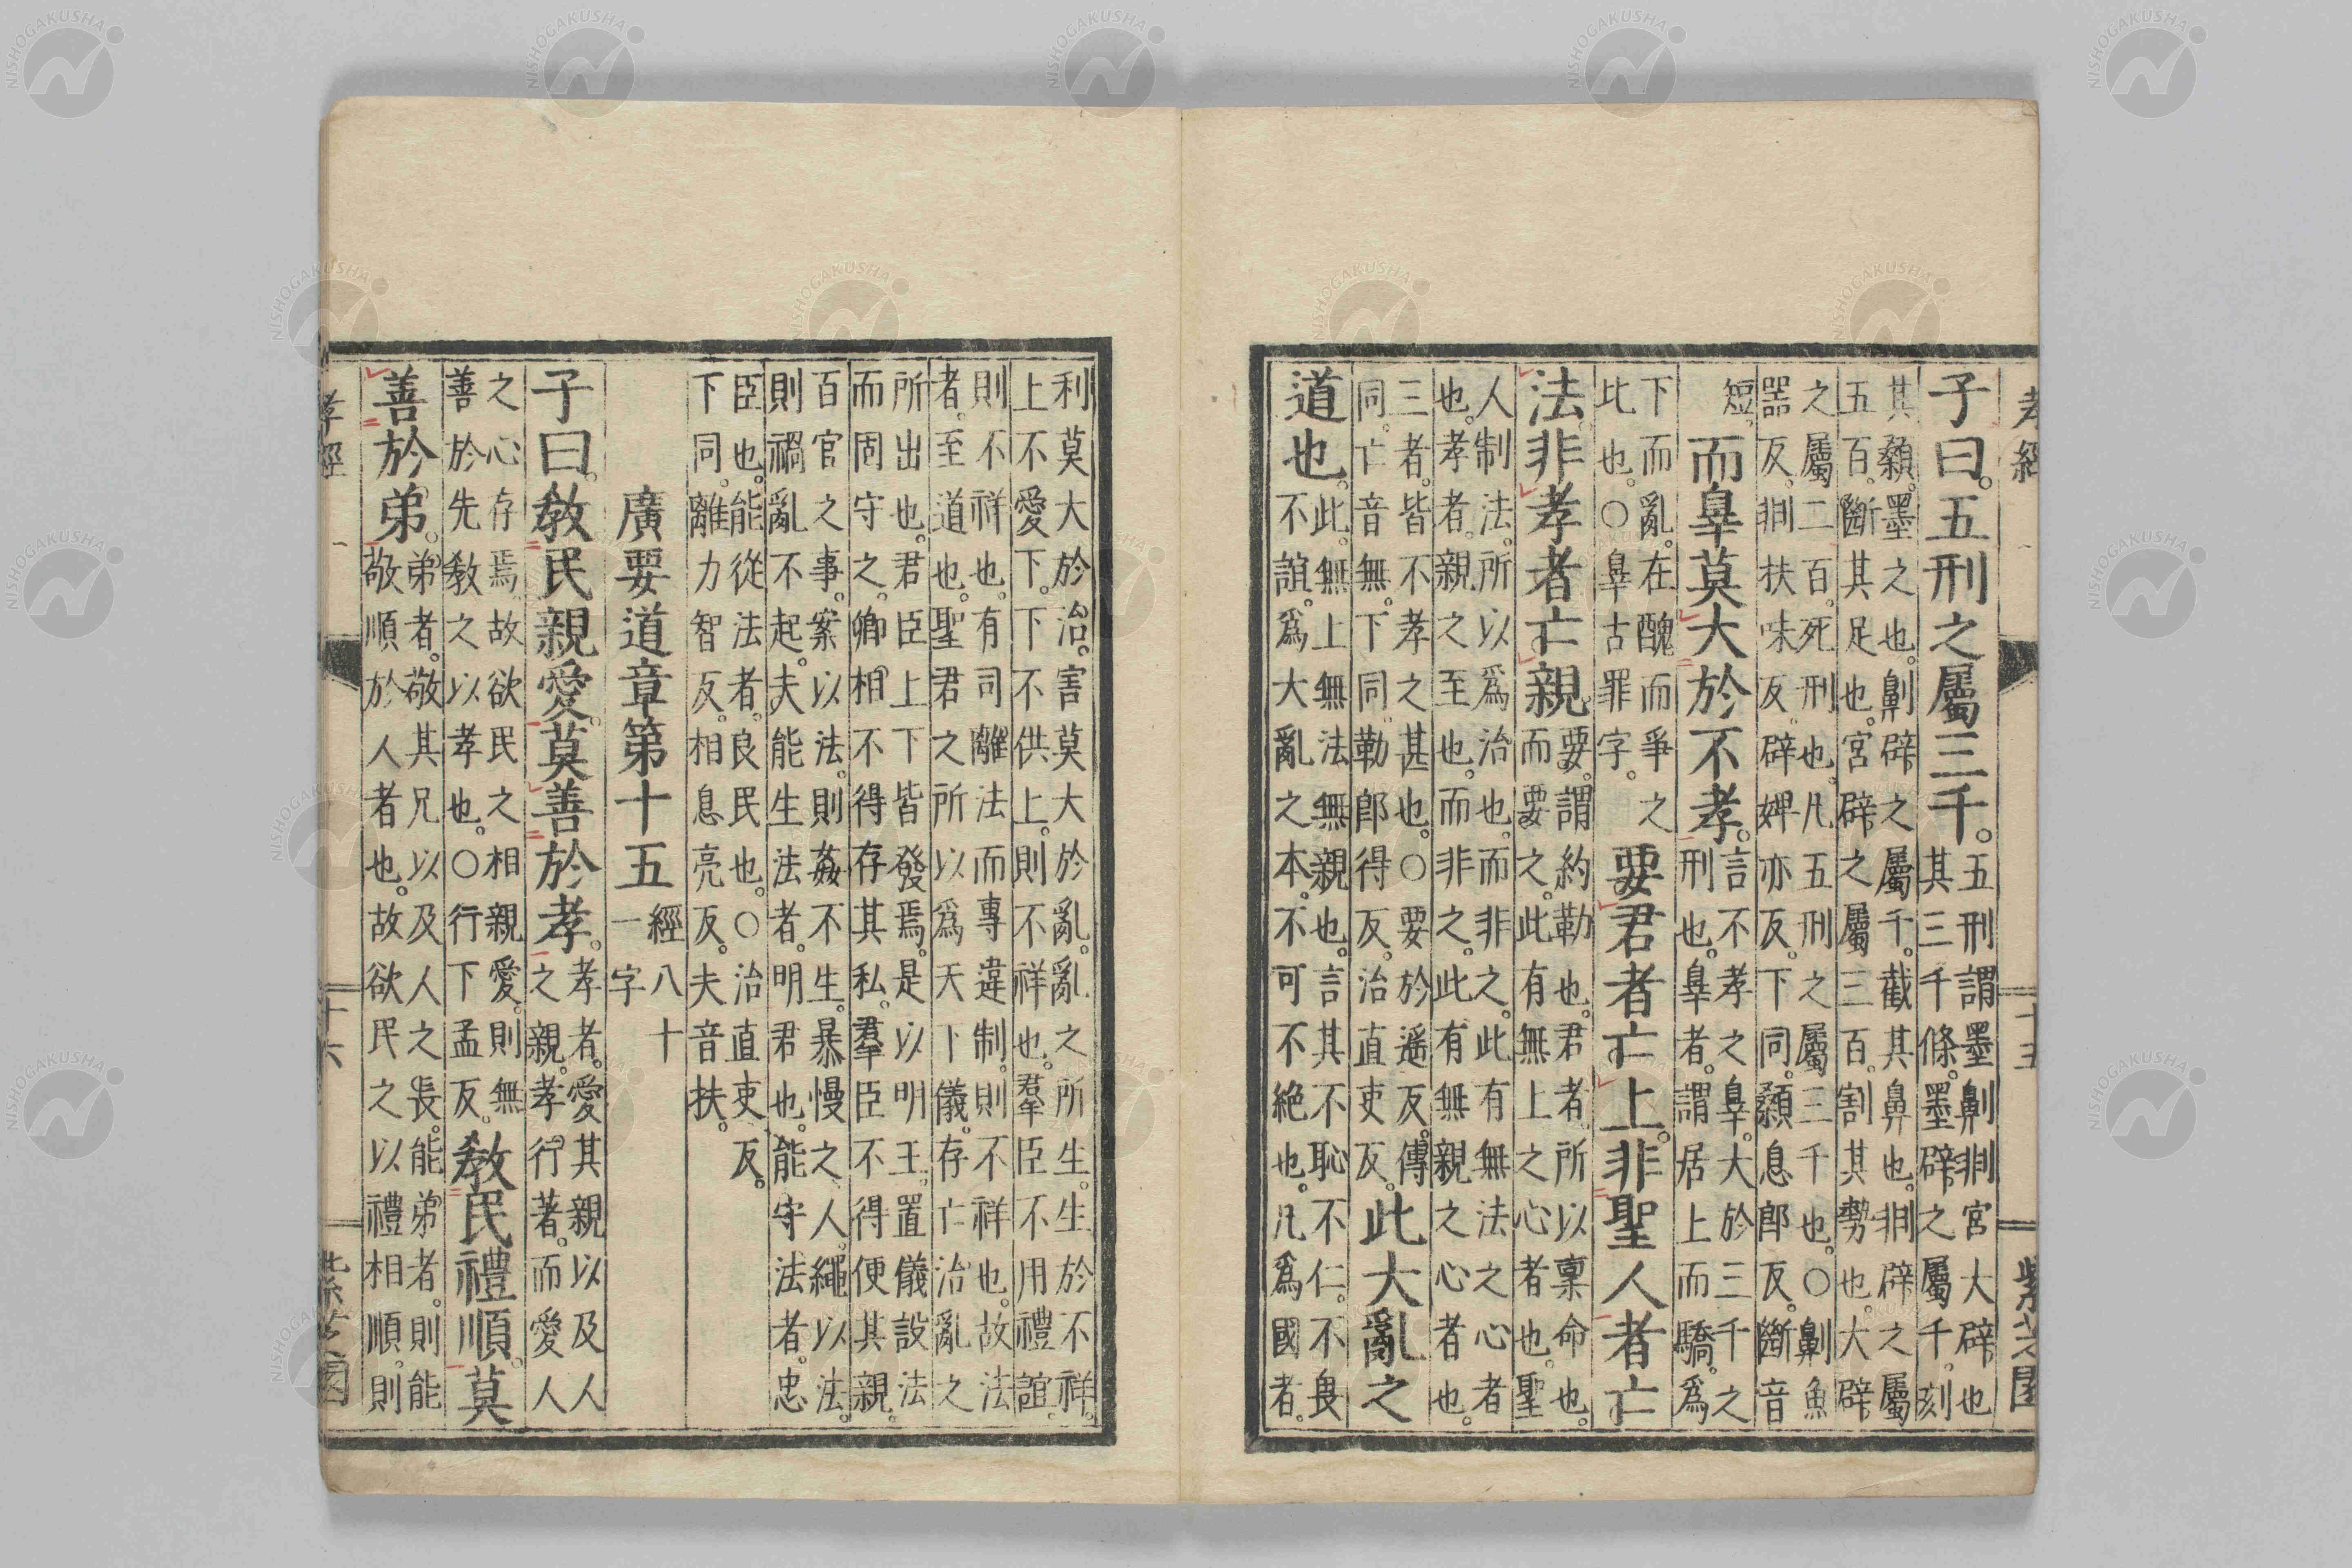 孝經 一 十五 紫芝園
子曰。五刑之屬三千。五刑謂墨劓剕宮大辟也
其三千條。墨辟之屬千。刻
其顙。墨之也。劓辟之屬千。截其鼻也。剕辟之屬
五百。斷其足也。宮辟之屬三百。割其勢也。大辟
之屬二百。死刑也。凡五刑之屬三千也。○劓魚
器反。剕扶味反。辟婢亦反。下同。顙息郎反。斷音
短。而辠莫大於不孝。言不孝之辠。大於三千之
刑也。辠者。謂居上而驕。爲
下而亂。在醜而爭之
比也。○辠古罪字。
要君者亡上。非聖人者亡
法。非孝者亡親。要。謂約勒也。君者。所以稟命也。
而要之。此有無上之心者也。聖
人制法。所以爲治也。而非之。此有無法之心者
也。孝者。親之至也。而非之。此有無親之心者也。
三者。皆不孝之甚也。○要於遙反。傳
同。亡音無。下同。勒郎得反。治直吏反。
此大亂之
道也。此。無上無法無親也。言其不恥不仁。不良
不誼。爲大亂之本。不可不絕也。凡爲國者。
利莫大於治。害莫大於亂。亂之所生。生於不祥。
上不愛下。下不供上。則不祥也。羣臣不用禮誼。
則不祥也。有司離法而專違制。則不祥也。故法
者。至道也。聖君之所以爲天下儀。存亡治亂之
所出也。君臣上下皆發焉。是以明王。置儀設法
而固守之。卿相不得存其私。羣臣不得便其親。
百官之事。案以法。則姦不生。暴慢之人。繩以法。
則禍亂不起。夫能生法者。明君也。能守法者。忠
臣也。能從法者。良民也。○治直吏反。
下同。離力智反。相息亮反。夫音扶。
廣要道章第十五 經八十
一字
子曰。敎民親愛。莫善於孝。孝者。愛其親以及人
之親。孝行著。而愛人
之心存焉。故欲民之相親愛。則無
善於先敎之以孝也。○行下孟反。
敎民禮順。莫
善於弟。弟者。敬其兄以及人之長。能弟者。則能
敬順於人者也。故欲民之以禮相順。則
孝經 一 十六 紫芝園